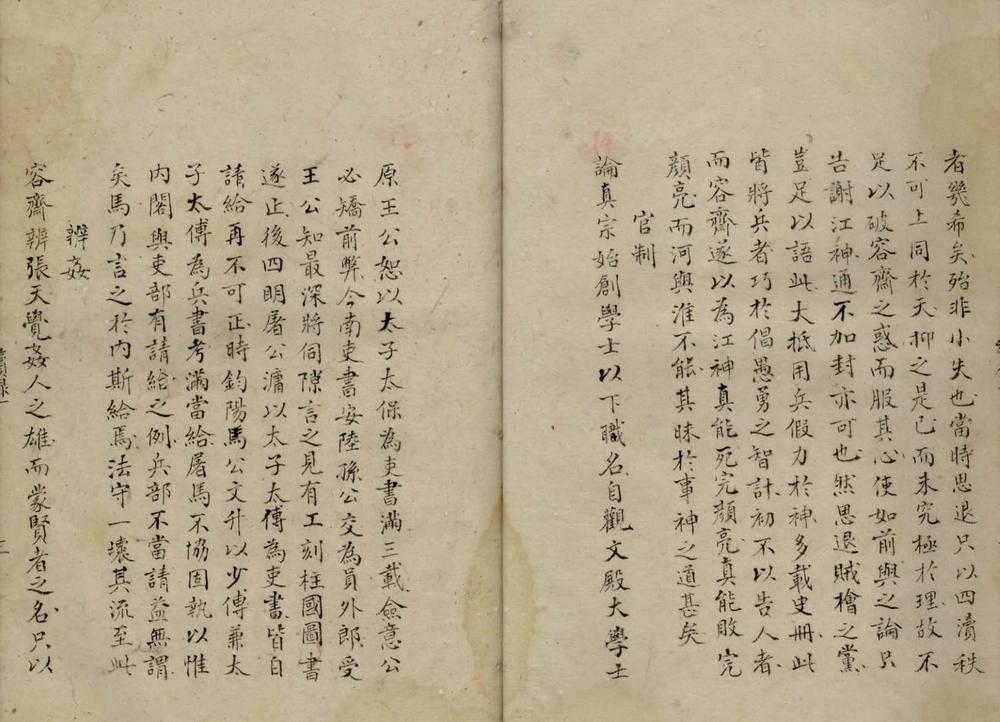 者幾希矣殆非小失也當時思退只以四瀆秩
不可上同於天抑之是已而未究極於理故不
足以破容齋之惑而服其心使如前與之論只
告謝江神通不加封亦可也然思退賊檜之黨
豈足以語此大抵用兵假力於神多載史冊此
皆將兵者巧於倡愚勇之智計初不以告人者
而容齋遂以為江神真能死完顏亮真能敗完
顏亮而河與淮不能其昧於事神之道甚矣
官制
論真宗始創學士以下職名自觀文殿大學士
原王公恕以太子太保為吏書滿三載僉意公
必矯前弊今南吏書安陸孫公交為員外郎受
王公知最深將伺隙言之見有工刻柱國圖書
遂止後四明屠公滽以太子太傅為吏書皆自
請給再不可正時鈞陽馬公文升以少傅兼太
子太傅為兵書考滿當給屠馬不協固執以惟
內閣與吏部有請給之例兵部不當請益無謂
矣馬乃言之於內斯給焉法守一壞其流至此
辨姦
容齋辨張天覺姦人之雄而蒙賢者之名只以